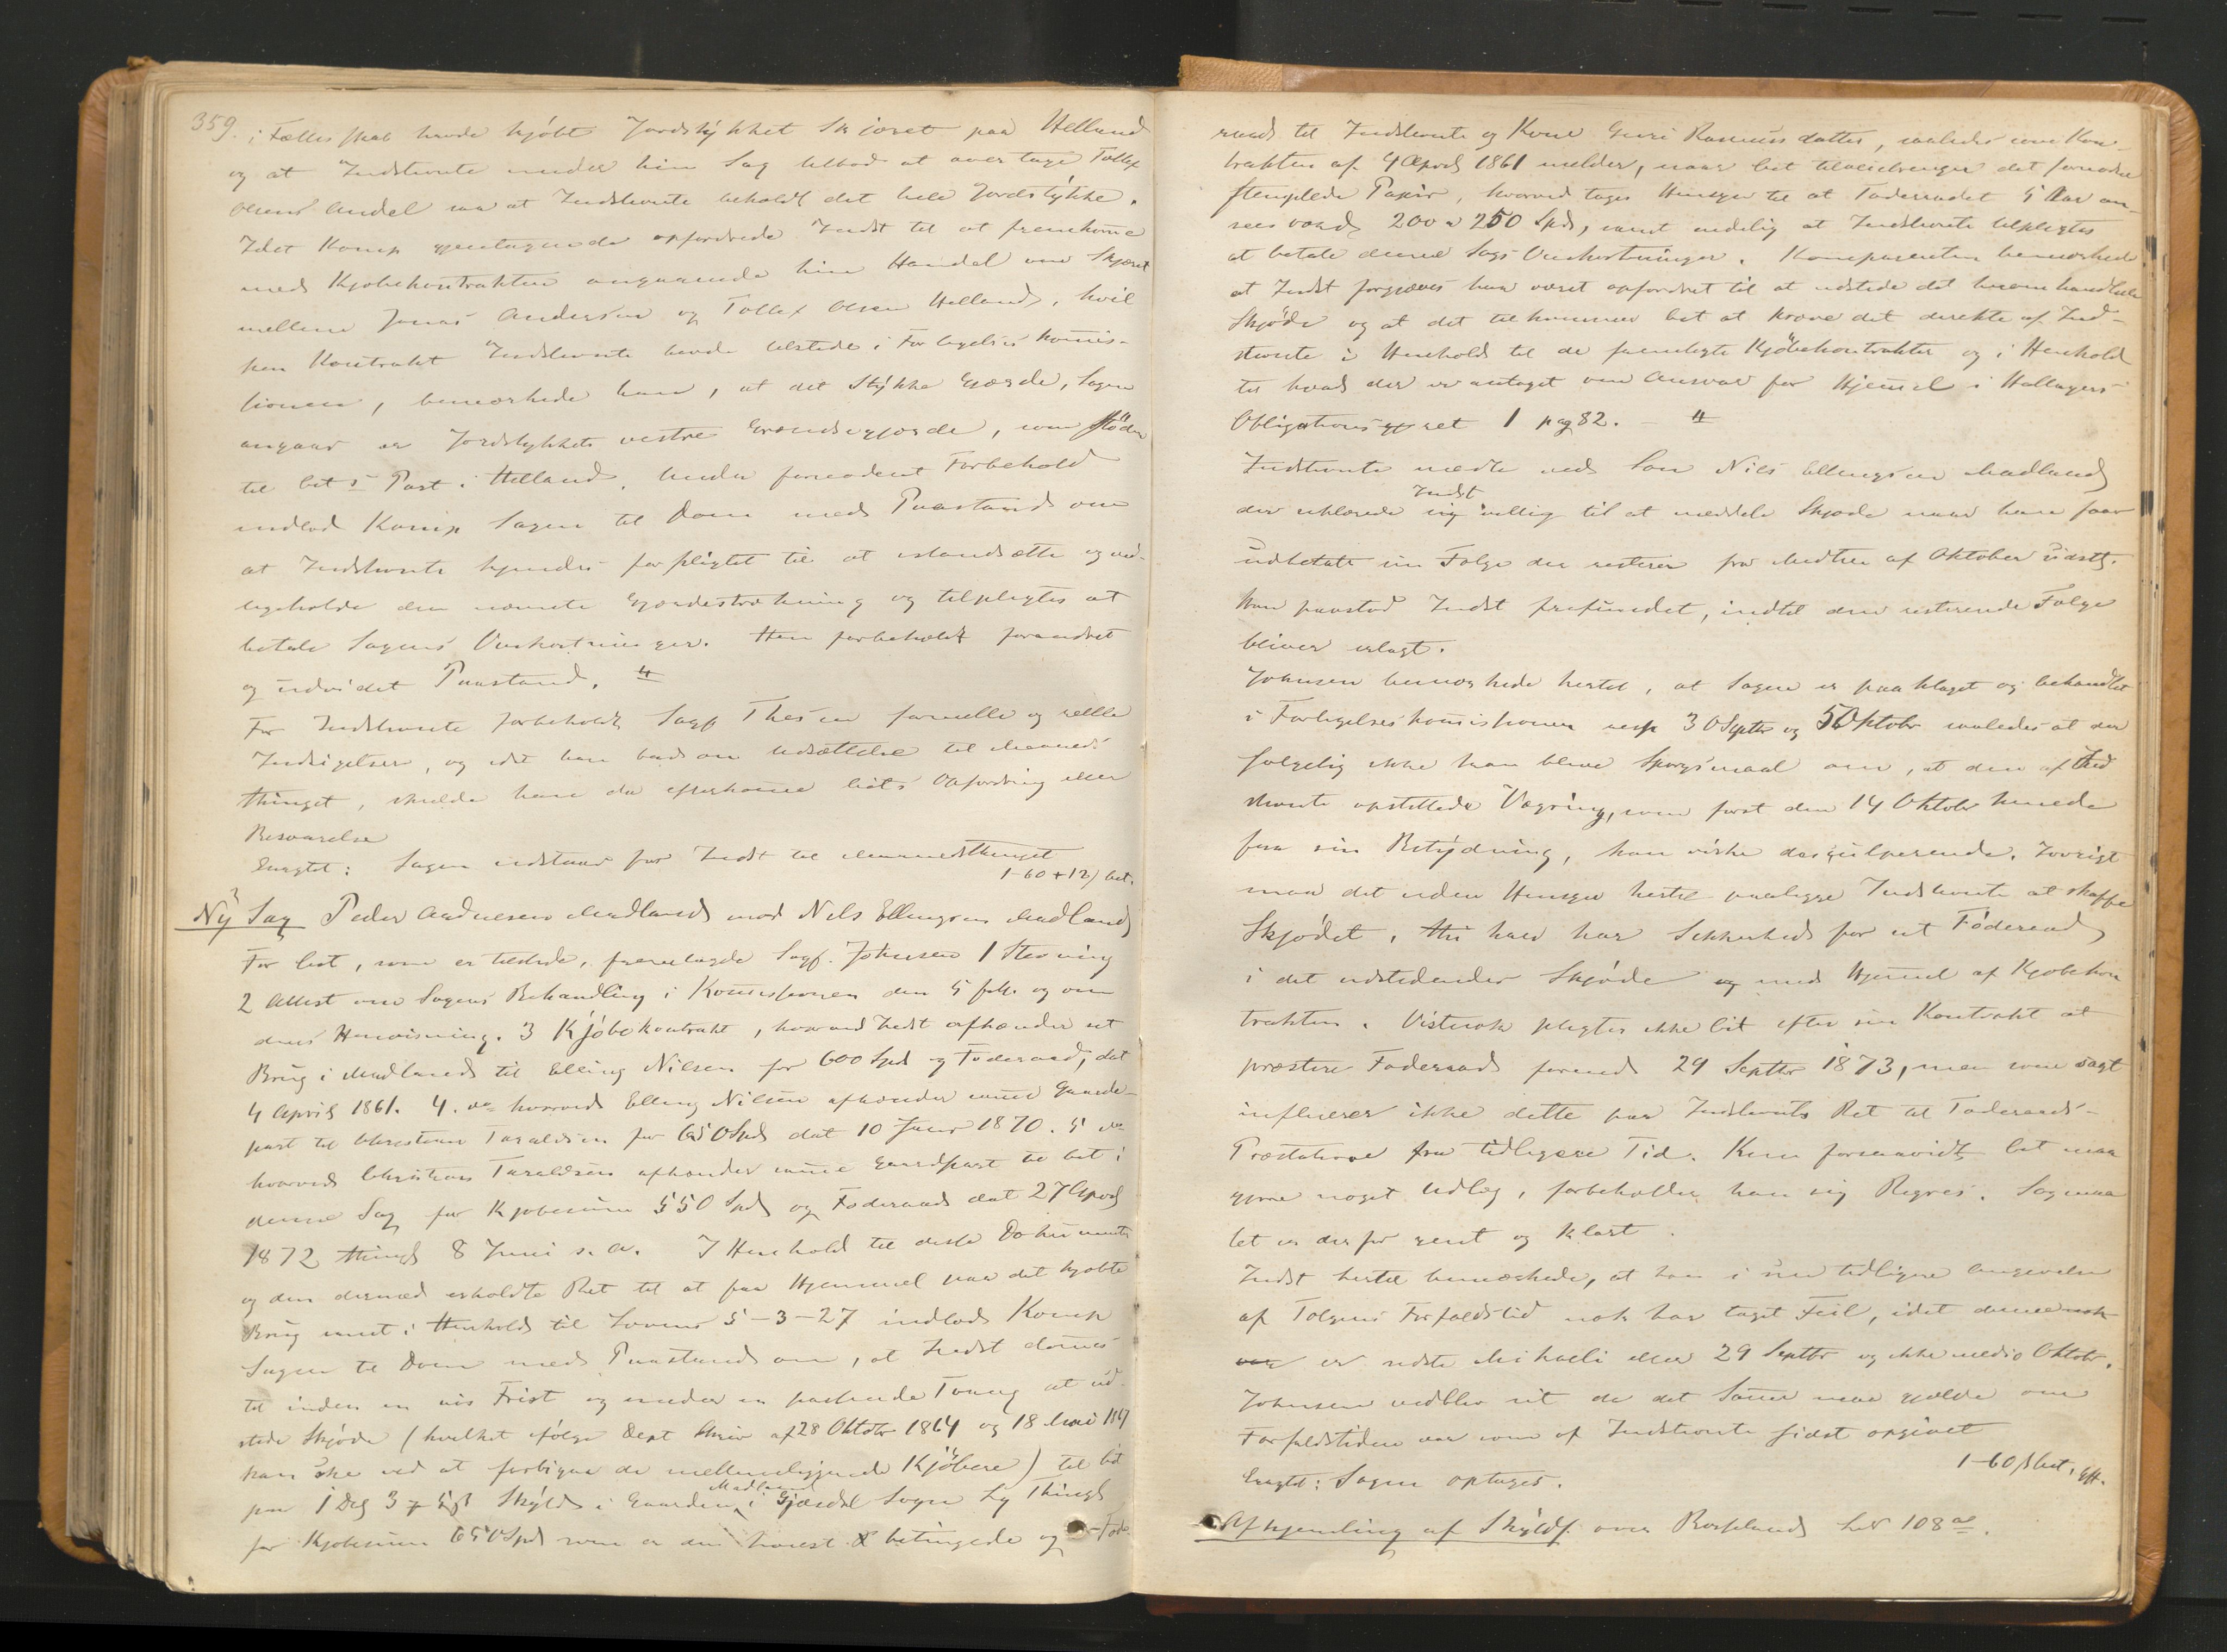 359. i Fællesskab havde kjöbt Jordstykket Skjæret paa Helland
og at Indstevnte under hin Sag tilbød at overtage Tollef
Olsens Andel saa at Indstevnte beholdt det hele Jordstykke.
Idet Komp gjentagende opfordrede Indst til at fremkome
med Kjøbekontrakten angaaende hin Handel om Skjæret
mellem Jonas Andersen og Tollef Olsen Helland, hvil
ken Kontrakt Indstevnte havde tilstede i Forligelses komis-
sionen, bemærkede han, at det Stykke Gjærde, Sagen
angaar er Jordstykkets vestre Grændsegjærde, som støder
til Cit s Part i Helland. Under fornødent Forbehold
indlod Komp Sagen til Dom med Paastand om
at Indstevnte kjendes forpligtet til at istandsætte og ved-
ligeholde den nævnte Gjærdestrækning og tilpligtes at
betale Sagens Omkostninger. Han forbeholdt forandret
og udvidet Paastand.
For Indstevnte forbeholdt Sagf Thesen formelle og reelle
Indsigelser, og idet han bad om Udsættelse til Maaneds
thinget, skulde han da efterkomme Cits Opfordring eller
Besvarelse
Eragtet: Sagen udstaar for Indst til Maanedsthinget
1-60 + 12 / bet.
Ny Sag Peder Aadnesen Madland mod Nils Ellingsen Madland
For Cit, som er tilstede, fremlagde Sagf. Johnsen 1 Stevning
2 Attest om Sagens Behandling i Komissionen den 5 f.M. og om
dens Henvisning. 3 Kjöbekontrakt, hvorved Indst afhænder sit
Brug i Madland til Elling Nilsen for 600 Spd og Föderaad, dat
4 April 1861. 4. do hvorved Elling Nilsen afhænder samme Gaarde-
part til Christian Taraldsen for 650 Spd dat 10 Janr 1870. 5 do
hvorved Christian Taraldsen afhænder samme Gaardpart til Cit i
denne Sag for Kjøbesum 550 Spd og Føderaad dat 27 April
1872 thingl 8 Juni s. A. I Henhold til disse Dokumenter
og den dermed erholdte Ret til at faa Hjemmel paa det kjøbte
Brug samt i Henhold til Lovens 5-3-27 indlod Komp
Sagen til Dom med Paastand om, at Indst dømes
til inden en vis Frist og under en passende Tvang at ud-
stede Skjøde (hvilket ifölge Dept Skriv af 28 Oktobr 1864 og 18 Mai 1867
kan ske ved at forbigaa de mellemliggende Kjöbere) til Cit
paa 1 Dlr 3 Skyld i Gaarden Madland i Gjæsdal Sogn Thingl
for Kjøbesum 650 Spd som er den höiest betingede og Føde-
raad til Indstevnte og Kone Guri Rasmusdatter, saaledes som Kon-
trakten af 4 April 1861 melder, naar Cit tilveiebringer det fornødne
stemplede Papir, hvorved tages Hensyn til at Føderaadet 5 Aar an-
sees værd 200 a 250 Spd, samt endelig at Indstevnte tilpligtes
at betale denne Sags Omkostninger. Komparenten bemærkede
at Indst forgjæves har været opfordret til at udstede det heromhandlede
Skjöde og at det tilkommer Cit at kræve det direkte af Ind-
stevnte i Henhold til de fremlagte Kjöbekontrakter og i Henhold
til hvad der er antaget om Ansvar for Hjemel i Hallagers
Obligationsret 1 pag 82.
Indstevnte mødte ved Søn Nils Ellingsen Madland
der erklærede Indst villig til at meddele Skjøde naar han faar
udbetalt sin Folge der resterer fra Midten af Oktober sidstl.
Han paastod Indst frifundet, indtil den resterende Folge
bliver erlagt.
Johnsen bemærkede hertil, at Sagen er paaklaget og behandlet
i Forligelseskomissionen resp 30 Septbr og 5 Oktobr saaledes at der
følgelig ikke kan blive Spørgsmaal om, at den af Ind
stevnte opstillede Vægring, som først den 14 Oktobr kunde
faa sin Betydning, kan virke desculperende. Iøvrigt
maa det uden Hensyn hertil paaligge Indstevnte at skaffe
Skjödet, thi han har Sikkerhed for sit Föderaad
i det udstedendes Skjøde og med Hjemel af Kjøbekon
trakten. Vistnok pligter ikke Cit efter sin Kontrakt at
præstere Føderaad forend 29 Septbr 1873, men som sagt
influerer ikke dette paa Indstevntes Ret til Føderaads-
Præstation fra tidligere Tid. Kun forsaavidt Cit maa
gjøre noget Udlæg, forbeholder han sig Regres. Sogsmaa
let er derfor rent og klart.
Indst hertil bemærkede, at han i sin tidligere Angivelse
af Folgens Forfaldstid nok har taget Feil, idet denne nok
er sidste Mikaeli eller 29 Septbr og ikke medio Oktobr.
Johnsen vedblev sit da det Samme maa gjælde om
Forfaldstiden var som af Indstevnte sidst opgivet
1-60 ß bet. Eft.
Eragtet: Sagen optages.
Afhjemling af Skyldf. over Bosland LNr 108 a.